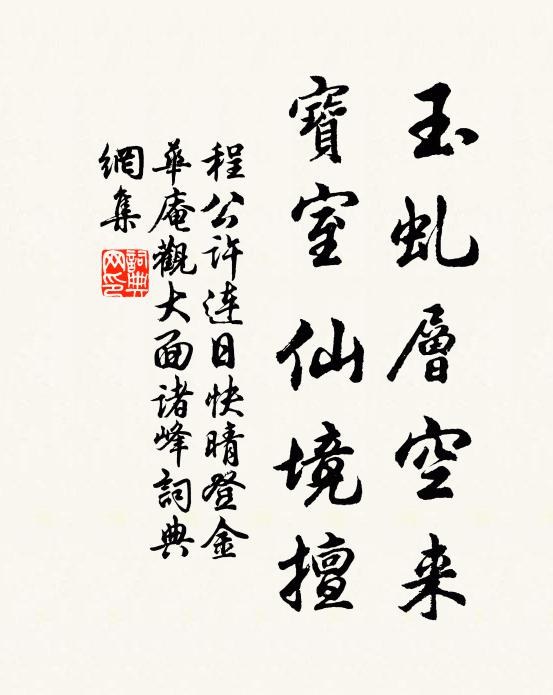 玉虬層空来
寶室仙境擅
程公许连日快晴登金
華庵觀大面诸峰詞典
網集
詞典网印